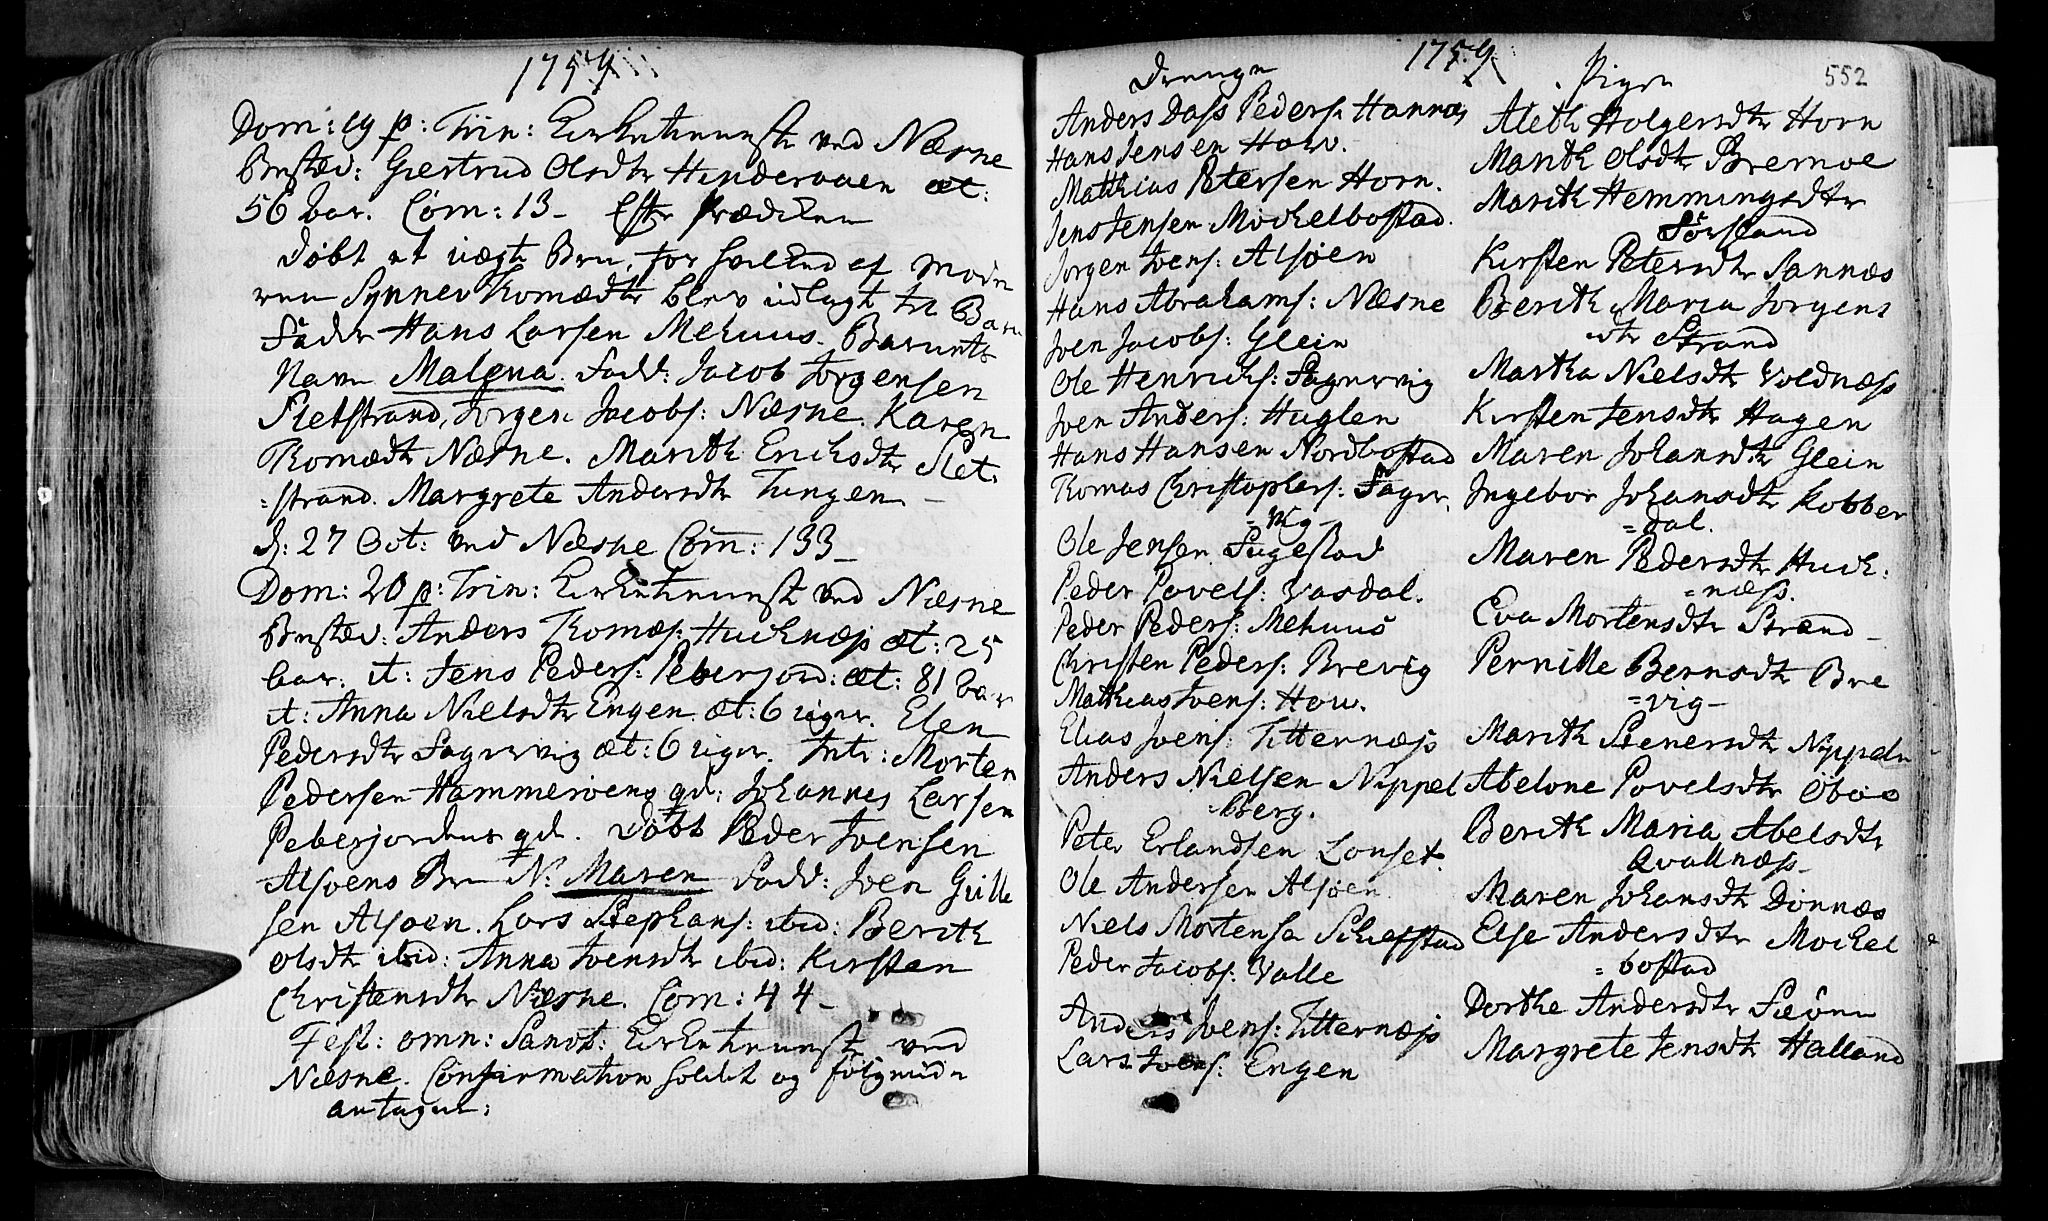 1759
Dom: 19 p: Trin: Kirketieneste ved Næsne
Begravet: Giertrud Olsdtr Hinderaaen æt:
56 aar. Com: 13 - Efter Prædiken
døbt et uægte Barn, for hvilket af Mode
ren Synnev Tomædtr blev udlagt til Barne
Fader Hans Larsen Mehuus. Barnets
Navn Malena. Fadd: Jacob Jørgensen
Sletstrand, Jørgen Jacobs: Næsne. Karen
Tomædtr Næsne. Marith Erichsdtr Slet
=strand. Margrete Andersdtr Tungen -
D: 27 Oct: ved Næsne Com: 133 -
Dom: 20 p: Trin: Kirketieneste ved Næsne
Anders Tomæs: Huchnæss æt: 25
aar. it: Jens Peders: Peberjord: æt: 81 aar
it: Anna Nielsdtr Engen. æt: 6 uger. Elen
Pedersdtr Fagervig æt: 6 uger. Intr: Morten
Pedersen Hammerøens qd: Johannes Larsen
Peberjordens qd. Døbt Peder Ivensen
Alsøens Barn N: Maren Fadd: Iven Gulle
sen Alsøen. Lars Stephans: ibid: Berith
Olsdtr ibid: Anna Ivensdtr ibid: Kirsten
Christensdtr Næsne. Com: 44 -
Fest: omn: Sanct: Kirketieneste ved
Næsne. Confirmation holdt og følgende
antagne:
1759.
552
Drenge
Anders Dass Peders: Hannæs
Hans Jensen Houv.
Matthias Petersen Horn.
Jens Jensen Mochelbostad.
Jørgen Ivens: Alsøen
Hans Abrahams: Næsne
Iven Jacobs: Glein
Ole Henrichs: Fagervig
Iven Anders: Huglen
Hans Hansen Nordbostad
Tomas Christophers: Fager
=vig -
Ole Jensen Sugestad
Peder Povels: Vasdal.
Peder Peders: Mehuus
Christen Peders: Brevig
Matthias Ivens: Hou.
Elias Ivens: Titternæss
Anders Nielsen Nippel
berg.
Peter Erlandsen Lonset.
Ole Andersen Alsøen
Niels Mortensen
Peder Jacobs: Valle
Anders Ivens: Titternæss
Lars Ivens: Engen
Piger
Aleth Holgersdtr Horn
Marith Olsdtr Bremoe
Marith Hemmingsdtr
Førsland
Kirsten Petersdtr Sannæs
Berith Maria Jørgens
dtr Strand
Martha Nielsdtr Voldnæss
Kirsten Jensdtr Hagen
Maren Johansdtr Glein
Ingebor Johansdtr Kobber
=dal.
Maren Pedersdtr Huch:
=næss.
Eva Mortensdtr Strand -
Pernille Berntsdtr Bre
=vig -
Marith Stenersdtr Nippeln
Abelone Povelsdtr
Berith Maria Abelsdtr
Qvallnæss -
Maren Johansdtr Dønnæs
Else Andersdtr Mochel
=bostad
Dorthe Andersdtr
Margrete Jensdtr Halland